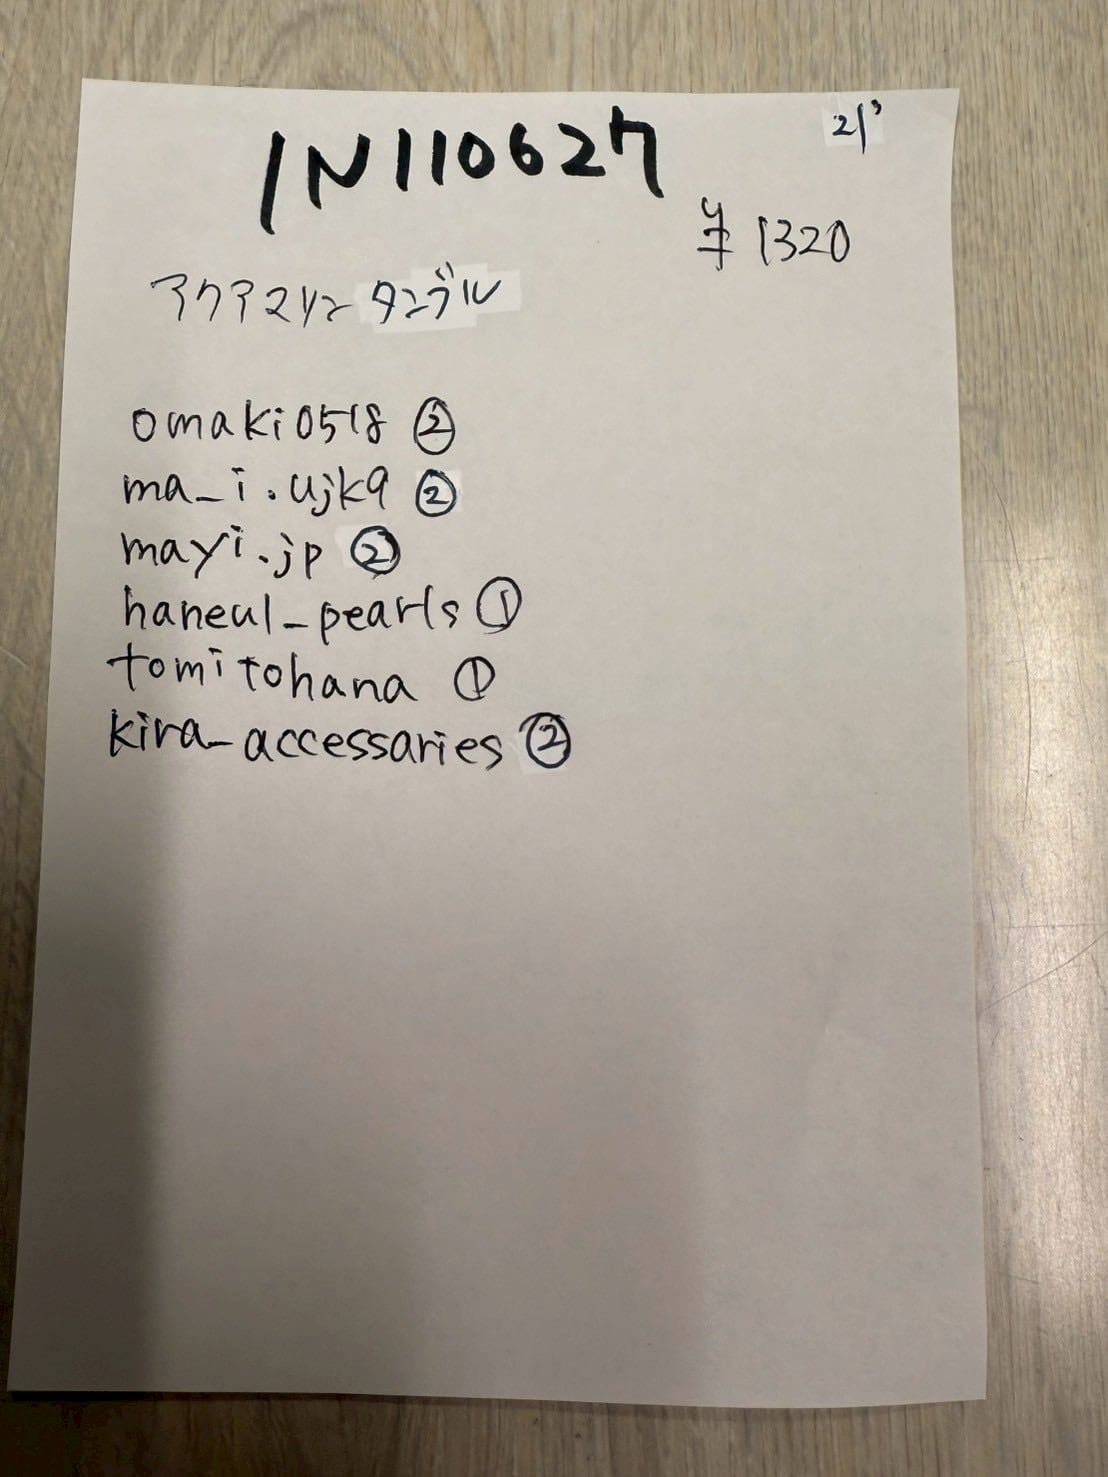 21'
IN110627
¥1320
アクアマリンタンブル
omaki0518 ②
ma_i.ujk9 ②
mayi.jp ②
haneul_pearls ①
tomitohana ①
kira_accessaries ②